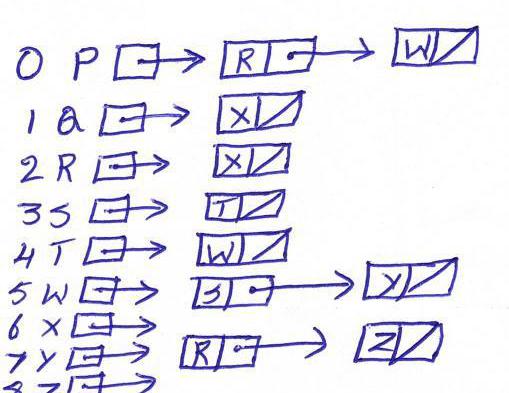 0 P R W
1 Q X
2 R X
3 S T
4 T W
5 W S Y
6 X
7 Y R Z
8 Z